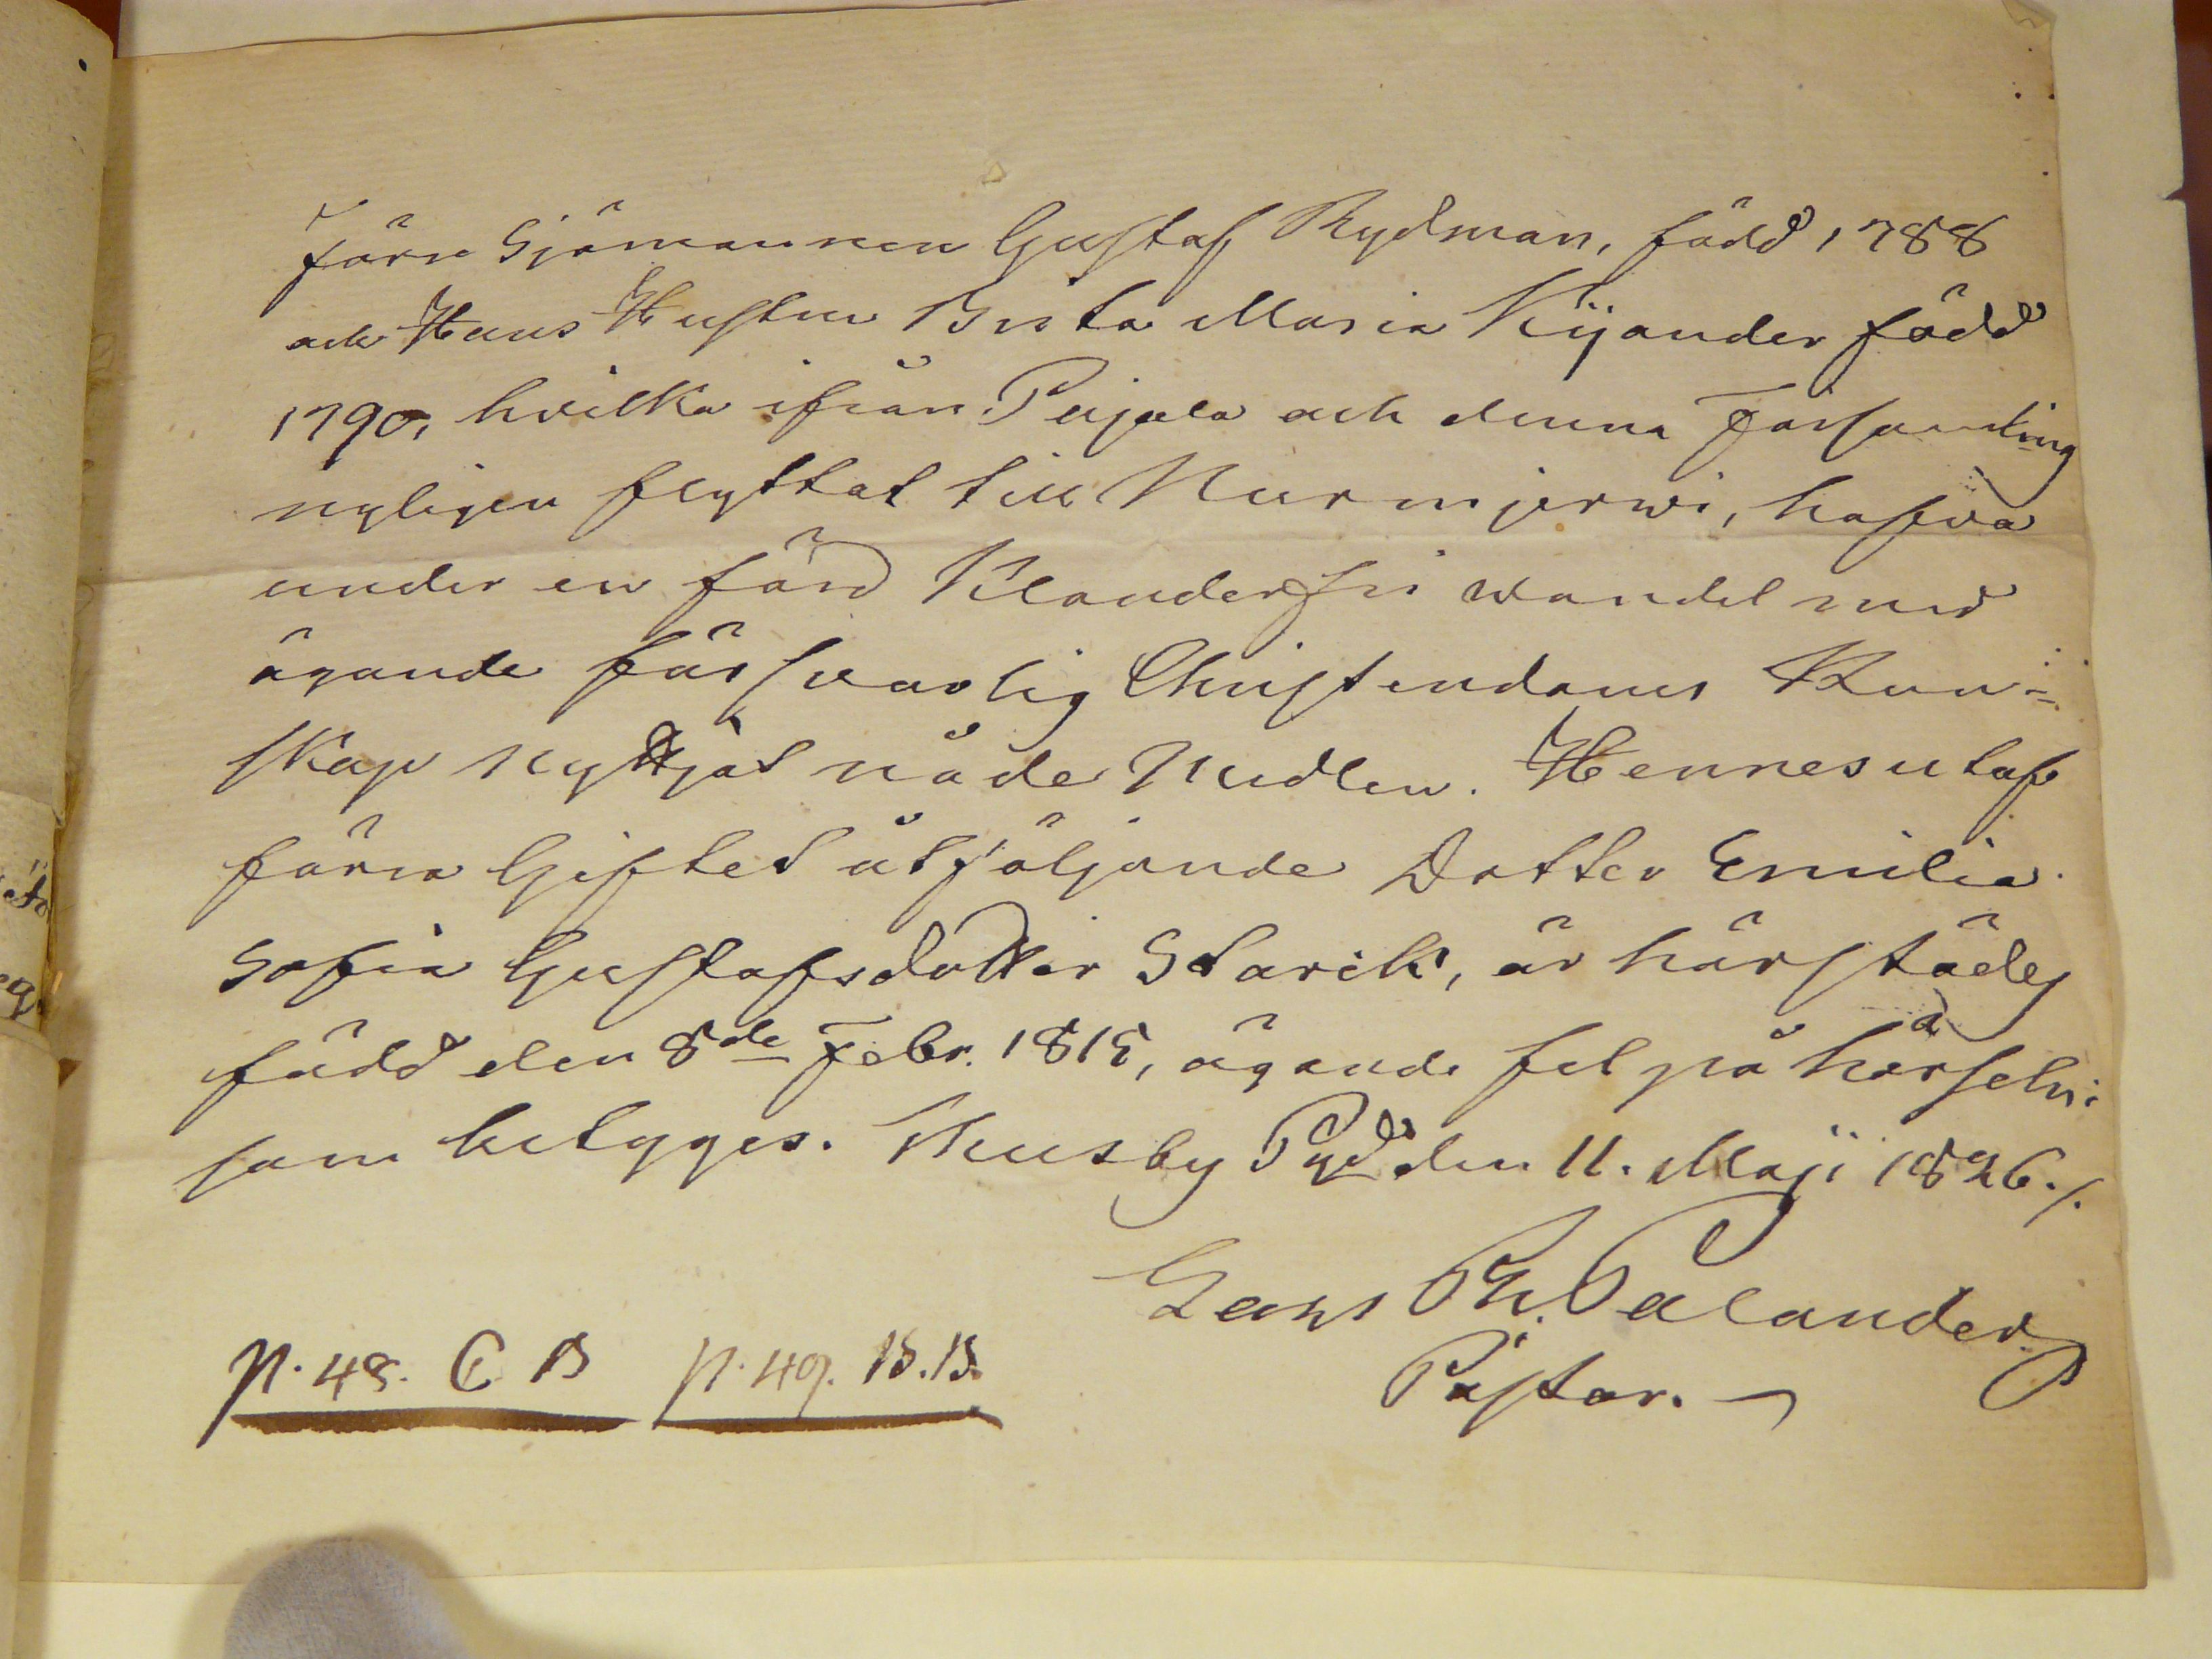 Förre Sjömannen Gustaf Rydman, född 1788
och Hans Hustru Brita Maria Kijander född
1790, hvilka ifrån Pajala och denna Församling
nyligen flyttat till Nurmijerwi, hafva
under en förd Klanderfri wandel med
ägande försvarlig Christendoms Kun-
skap nyttjat nåde Medlen. Hennes utaf
förra Giftet åtföljande Dotter Emilia
Sofia Gustafsdotter Starck, är härstädes
född den 8de Febr. 1815, ägande fel på hörseln:
som betygges. Thusby Pgd den 11. Maji 1826./.
Gabr Ph. Palander
Pastor.
p. 48. C B p. 49. B.B.